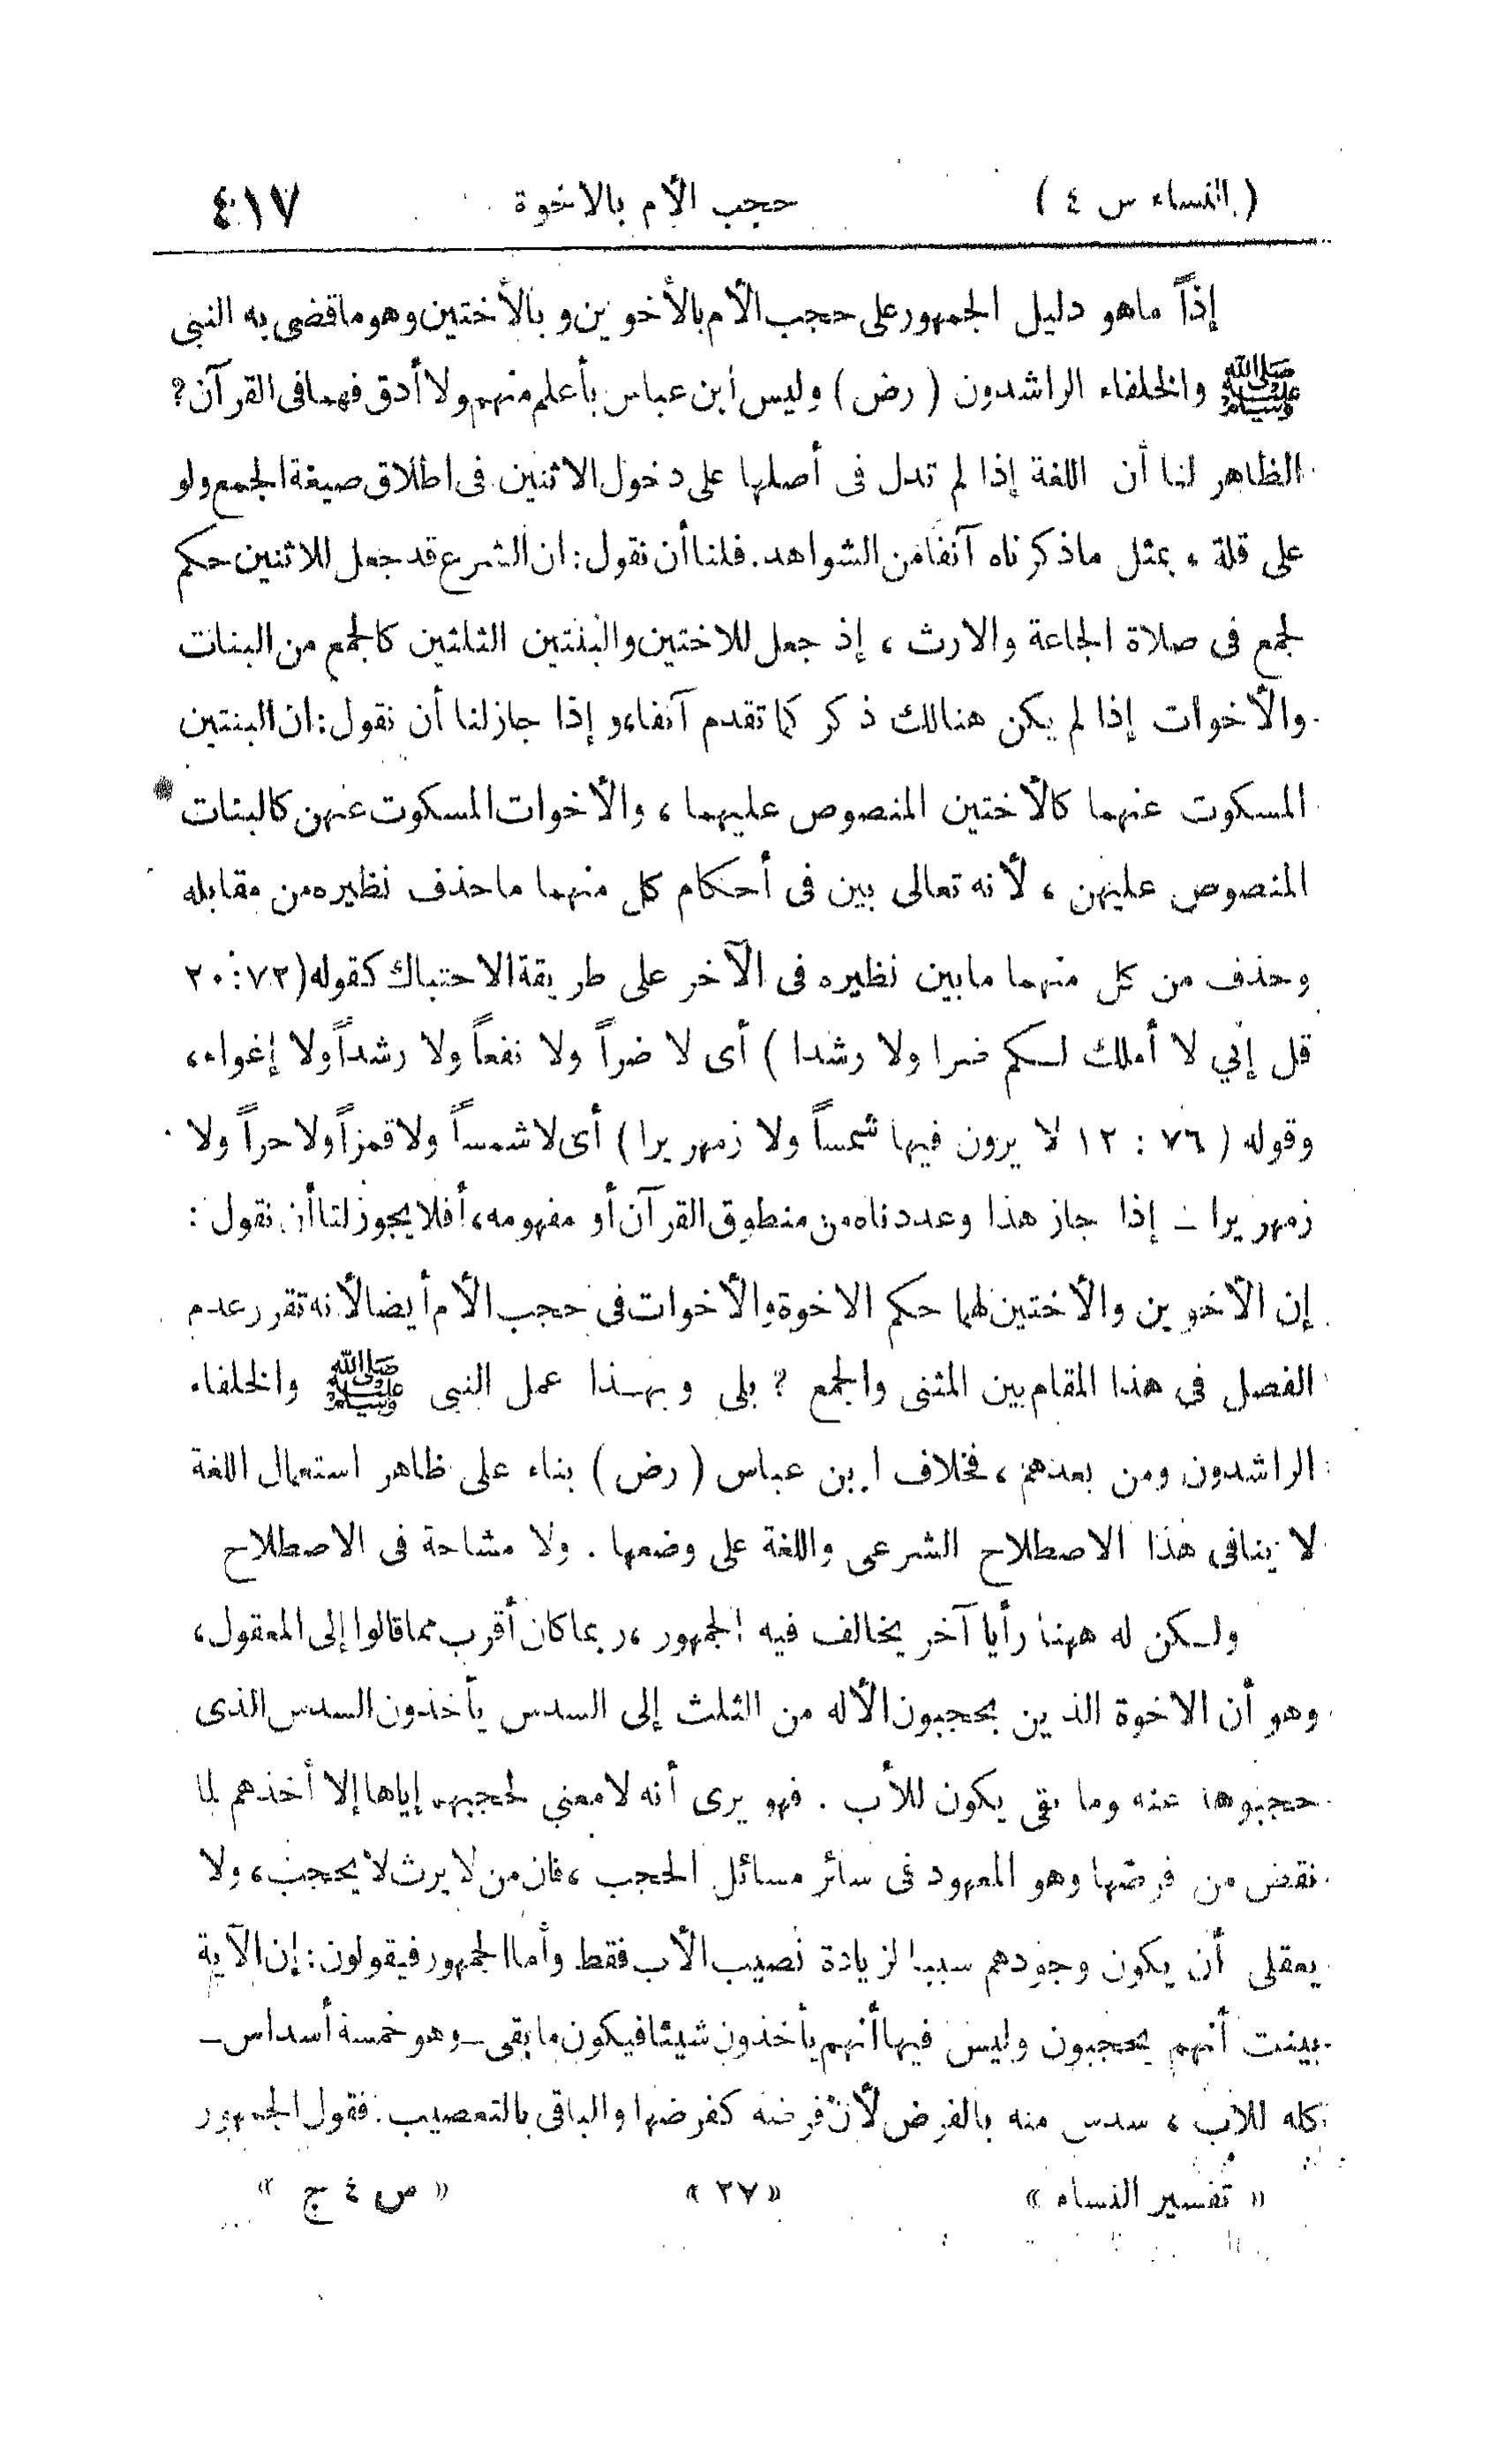 ( النساء س ٤ ) حجب الأم بالاخوة ٤١٧
إذاً ماهو دليل الجمهور على حجب الأم بالأخوين و بالأختين وهو ما قضى به النبي
ﷺ والخلفاء الراشدون ( رض ) وليس ابن عباس بأعلم منهم ولا أدق فهما فى القرآن ؟
الظاهر لنا أن اللغة إذا لم تدل فى أصلها على دخول الاثنين فى اطلاق صيغة الجمع ولو
على قلة ، بمثل ماذكرناه آنفا من الشواهد . فلنا أن نقول : ان الشرع قد جعل للاثنين حكم
لجمع فى صلاة الجماعة والارث ، إذ جعل للاختين والبنتين الثلثين كالجمع من البنات
والأخوات إذا لم يكن هنالك ذكر كما تقدم آنفا، و إذا جاز لنا أن نقول : ان البنتين
المسكوت عنهما كالأختين المنصوص عليهما ، والأخوات المسكوت عنهن كالبنات
المنصوص عليهن ، لأنه تعالى بين فى أحكام كل منهما ما حذف نظيره من مقابله
وحذف من كل منهما مابين نظيره فى الآخر على طريقة الاحتباك كقوله ( ٧٢ : ٢٠
قل إني لا أملك لكم ضرا ولا رشدا ) أى لا ضراً ولا نفعاً ولا رشداً ولا إغواء ،
وقوله ( ٧٦ : ١٢ لا يرون فيها شمساً ولا زمهريرا ) أى لا شمساً ولا قمراً ولا حراً ولا
زمهريرا – إذا جاز هذا وعددناه من منطوق القرآن أو مفهومه ، أفلا يجوز لنا أن نقول :
إن الأخوين والأختين لهما حكم الاخوة والأخوات فى حجب الأم أيضا لأنه تقرر عدم
الفصل فى هذا المقام بين المثنى والجمع ؟ بلى وبهـذا عمل النبى ﷺ والخلفاء
الراشدون ومن بعدهم ، فخلاف ابن عباس ( رض ) بناء على ظاهر استعمال اللغة
لا ينافى هذا الاصطلاح الشرعى واللغة على وضعها . ولا مشاحة فى الاصطلاح
ولـكن له ههنا رأيا آخر يخالف فيه الجمهور ، ربما كان أقرب مما قالوا إلى المعقول ،
وهو أن الاخوة الذين يحجبون الأله من الثلث إلى السدس يأخذون السدس الذى
حجبوها عنه وما بقى يكون للأب . فهو يرى أنه لا معني لحجبهم إياها إلا أخذهم لما
نقص من فرضها وهو المعهود فى سائر مسائل الحجب ، فان من لا يرث لا يحجب ، ولا
يعقل أن يكون وجودهم سببا لزيادة نصيب الأب فقط وأما الجمهور فيقولون : إن الآية
بينت أنهم يحجبون وليس فيها أنهم يأخذون شيئا فيكون ما بقى – وهو خمسة أسداس –
كله للأب ، سدس منه بالفرض لأن فرضه كفرضها والباقى بالتعصيب . فقول الجمهور
« تفسير النساء » « ٢٧ » « ص ٤ ج »